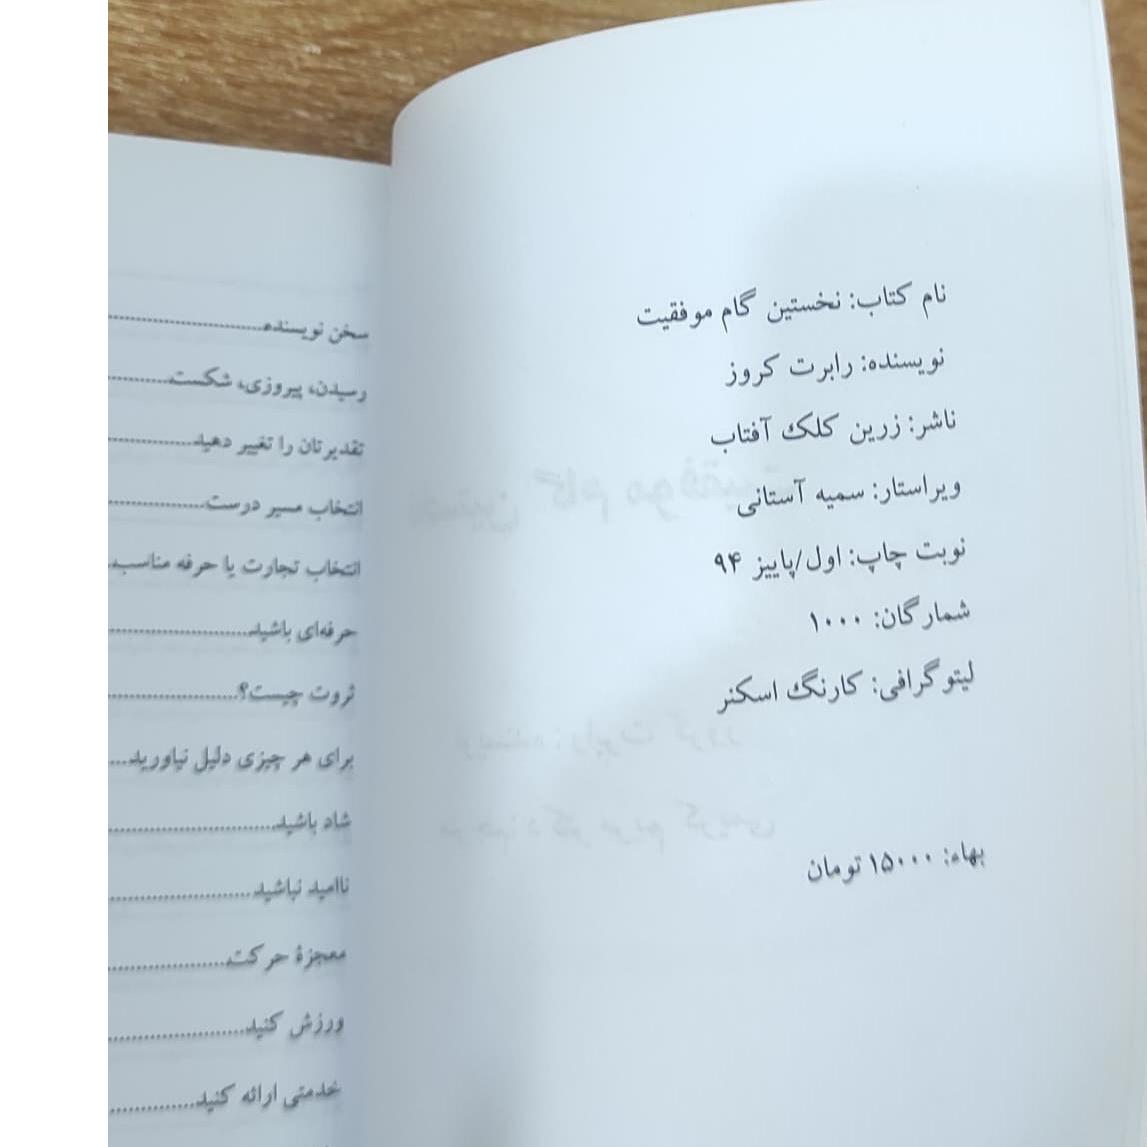 نام کتاب: نخستین گام موفقیت
نویسنده: رابرت کروز
ناشر: زرین کلک آفتاب
ویراستار: سمیه آستانی
نوبت چاپ: اول/پاییز ۹۴
شمارگان: ۱۰۰۰
لیتوگرافی: کارنگ اسکنر
بهاء: ۱۵۰۰۰ تومان
سخن نویسنده
رسیدن، پیروزی، شکست
تقدیرتان را تغییر دهید
انتخاب مسیر درست
انتخاب تجارت یا حرفه مناسب
حرفه‌ای باشید
ثروت چیست؟
برای هر چیزی دلیل نیاورید
شاد باشید
ناامید نباشید
معجزۀ حرکت
ورزش کنید
خدمتی ارائه کنید